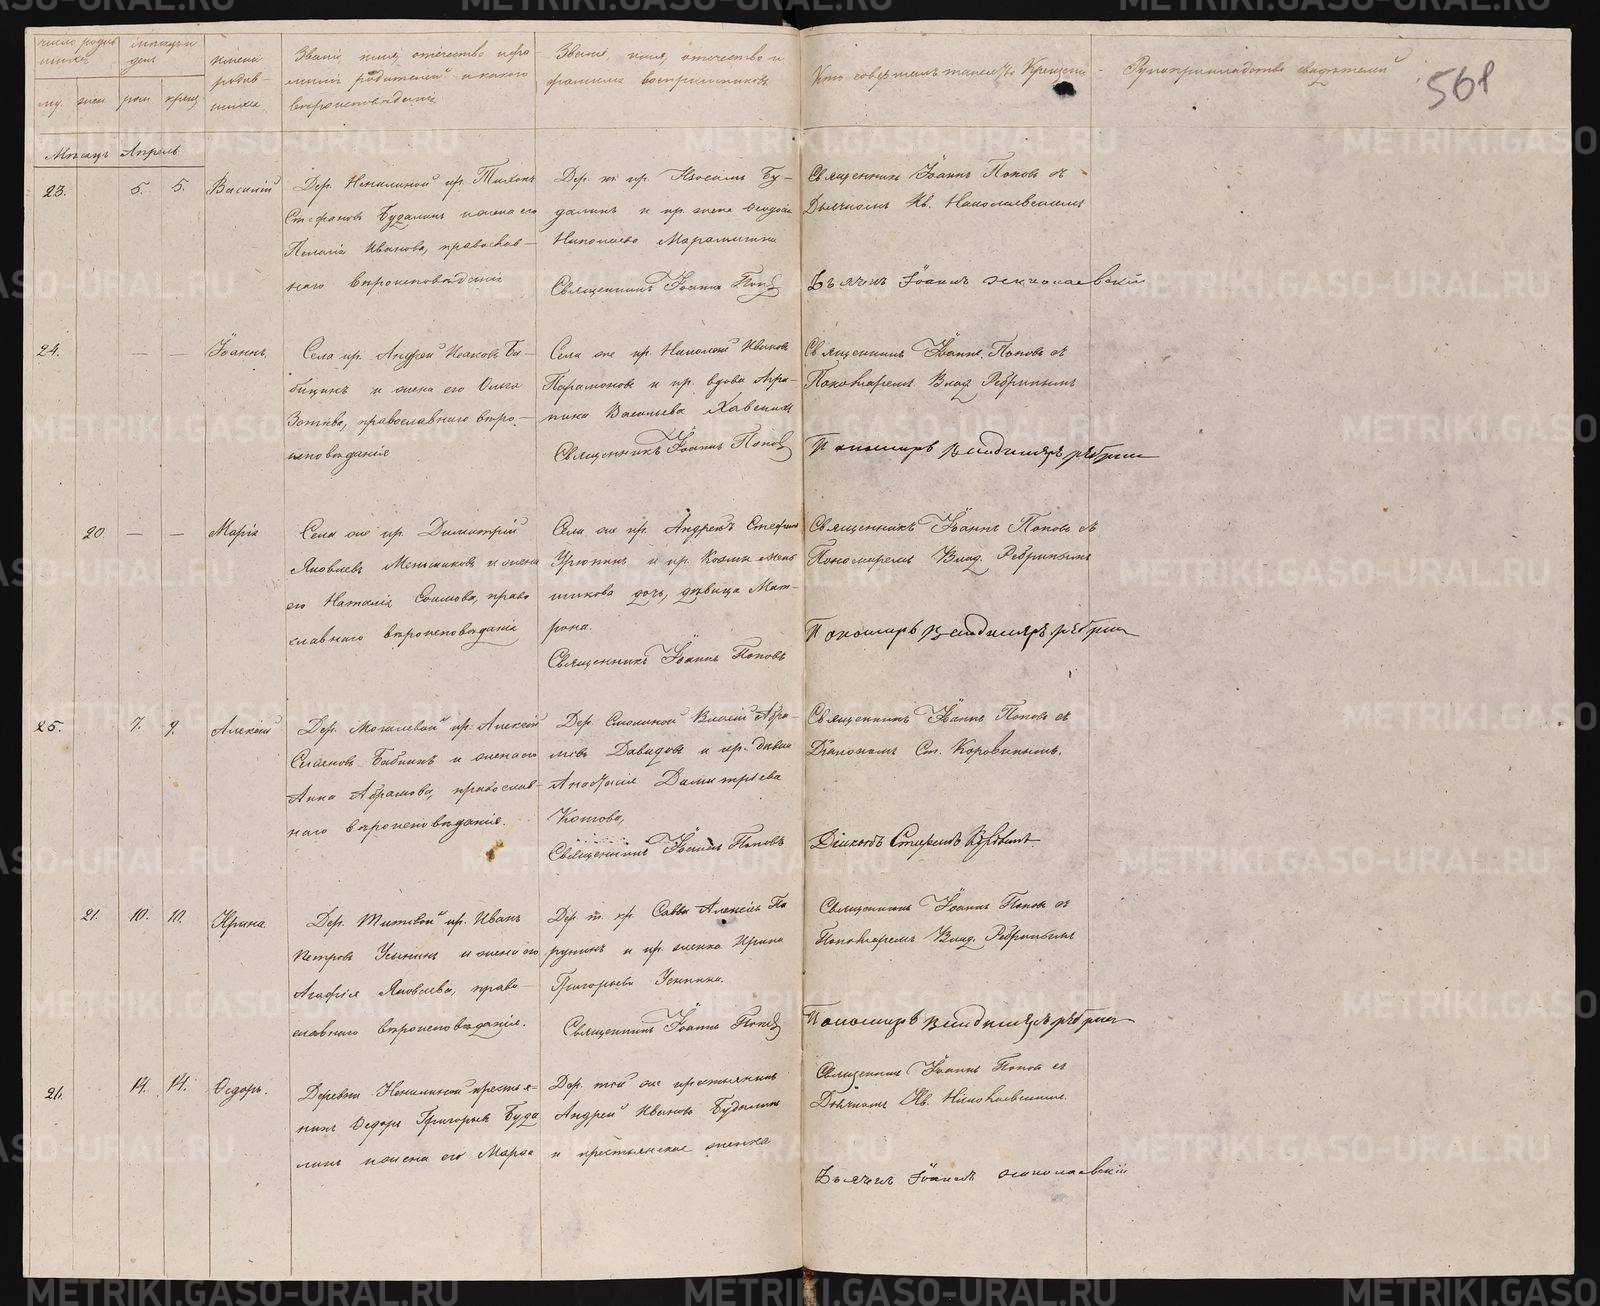 число родившихся
мѣсяцъ и день
имена родившихся
Званіе, имя, отчество и фамилія родителей и какого вѣроисповѣданія
Званіе, имя, отчество и фамилія воспріемниковъ
Кто совершалъ таинство Крещенія
Рукоприкладство свидѣтелей
561
му. жен. рож. крещ.
Мѣсяцъ Апрѣль
23. 5. 5. Василій
Дер. кр. Тихонъ
Стефановъ Будалинъ и жена его
Пелагія Иванова, православ-
наго вѣроисповѣданія
Дер. кр. Бу-
далинъ и кр. жена
Николаева
Священникъ Іоаннъ Поповъ
Священникъ Іоаннъ Поповъ съ
Дьячкомъ Ив. Николаевскимъ
Дьячекъ Іоаннъ Николаевскій
24. — — Іоаннъ.
Села кр. Андрей Исаковъ Ба-
бицинъ и жена его Ольга
Зотѣева, православнаго вѣро-
исповѣданія
Села же кр. Николай Ивановъ
Парамоновъ и кр. вдова Агри-
пина Васильева
Священникъ Іоаннъ Поповъ
Священникъ Іоаннъ Поповъ съ
Пономаремъ Влад. Ребринымъ
Пономарь Владимиръ Ребринъ
20. — — Марія
Села же кр. Димитрій
Яковлевъ Меньшиковъ и жена
его Наталія православнаго вѣроисповѣданія
Села же кр. Андрей Стефановъ
и кр. Козмы Меньшикова дочь, дѣвица Мат-
рона.
Священникъ Іоаннъ Поповъ
Священникъ Іоаннъ Поповъ съ
Пономаремъ Влад. Ребринымъ
Пономарь Владимиръ Ребринъ
25. 7. 9. Алексій
Дер. Могилевой кр. Алексій
Бабинъ и жена его
Анна Абрамова, православ-
наго вѣроисповѣданія.
Дер. Смолиной Власій Абра-
мовъ Давыдовъ и кр. дѣвица
Анастасія Димитріева
Котова,
Священникъ Іоаннъ Поповъ
Священникъ Іоаннъ Поповъ съ
Діакономъ Ст. Коровинымъ.
Діаконъ Стефанъ Коровинъ
21. 10. 10. Ирина
Дер. Титовой кр. Иванъ
Петровъ Усынинъ и жена его
Агафія Яковлева, право-
славнаго вѣроисповѣданія.
Дер. той кр. Савва Алексѣевъ Па-
рунинъ и кр. женка Ирина
Григорьева Усынина.
Священникъ Іоаннъ Поповъ
Священникъ Іоаннъ Поповъ съ
Пономаремъ Влад. Ребринымъ
Пономарь Владимиръ Ребринъ
26. 14. 14. Ѳедоръ.
Деревни крестья-
нинъ Ѳедоръ Григорьевъ Буда-
линъ и жена его Марѳа
Дер. той же крестьянинъ
Андрей Ивановъ Будалинъ
и крестьянская женка
Священникъ Іоаннъ Поповъ съ
Дьячкомъ Ив. Николаевскимъ.
Дьячекъ Іоаннъ Николаевскій
METRIKI.GASO-URAL.RU